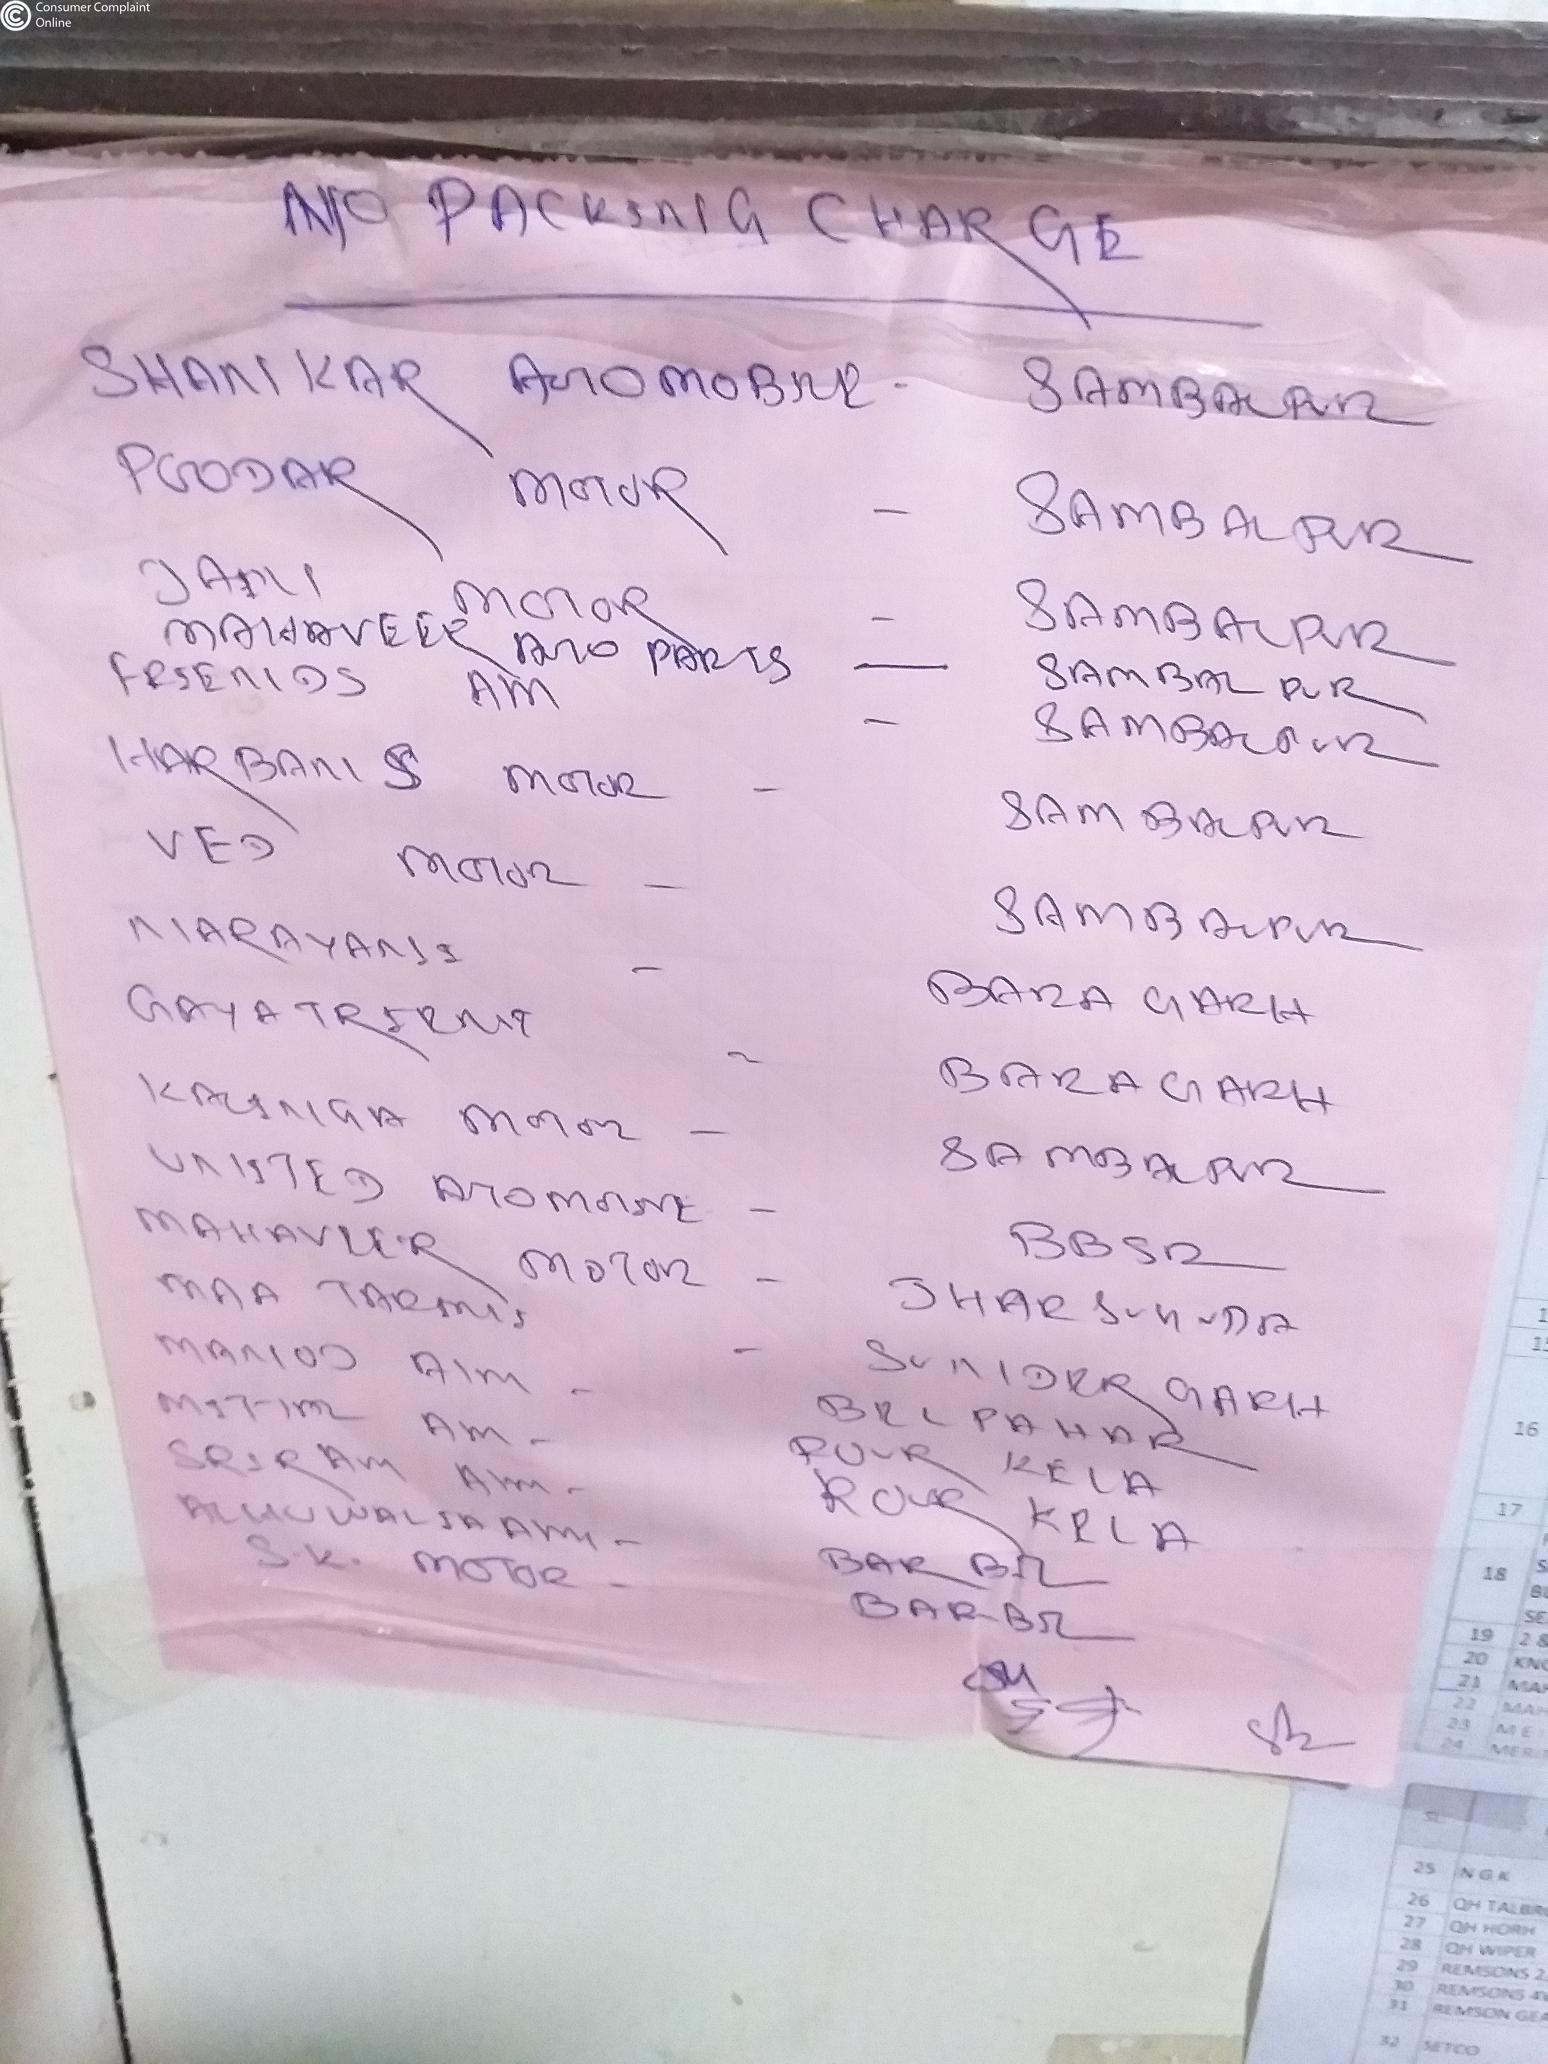 Consumer Complaint
Online
NO PACKING CHARGE
SHANKAR AUTOMOBILE - SAMBALPUR
PODDAR MOTOR - SAMBALPUR
JAIN MOTOR - SAMBALPUR
MAHAVEER AUTO PARTS - SAMBALPUR
FRIENDS AM - SAMBALPUR
HARBANS MOTOR - SAMBALPUR
VED MOTOR - SAMBALPUR
NARAYANI - BARAGARH
GAYATRI - BARAGARH
KALINGA MOTOR - SAMBALPUR
UNITED AUTOMOTIVE - BBSR
MAHAVEER MOTOR - JHARSUGUDA
MAA TARINI - SUNDERGARH
MANOJ AM - BELPAHAR
AM - ROURKELA
SRIRAM AM - ROURKELA
ALHUWALIA AM - BARBIL
S.K. MOTOR - BARBIL
16
17
18
19 2 &
20 KNO
21 MAH
22 MAH
23 MEI
24 MERI
SL
25 NGK
26 QH TALBRO
27 QH HORH
28 QH WIPER
29 REMSONS 2
30 REMSONS 4W
31 REMSON GEA
32 SETCO